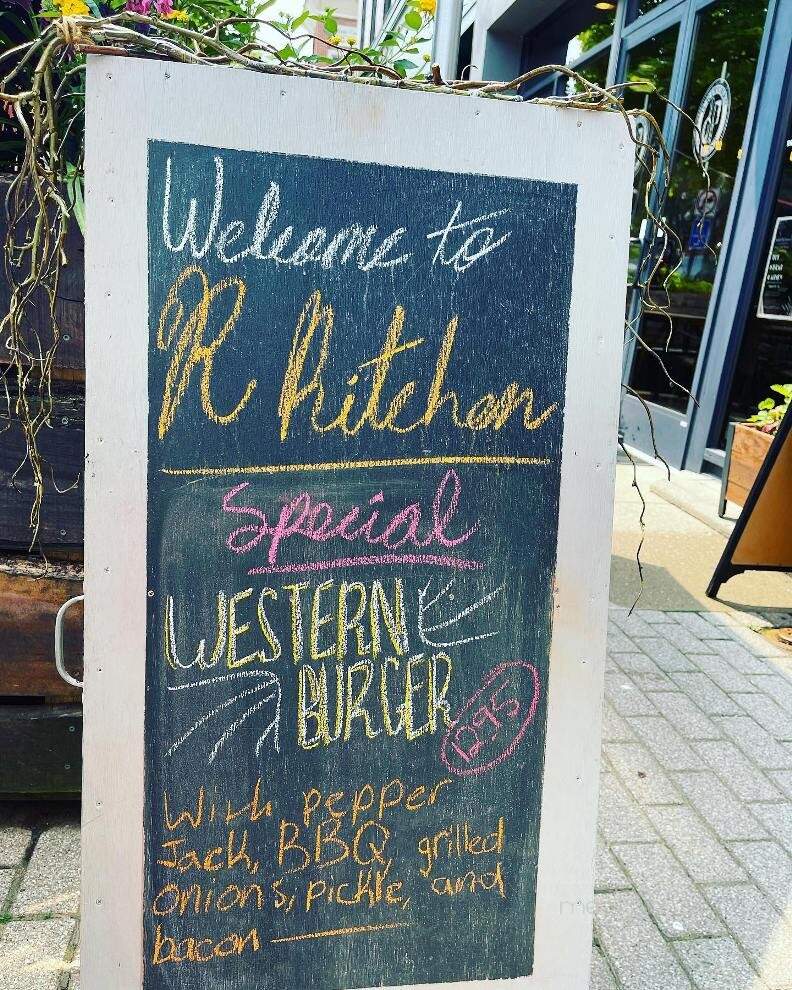 Welcome to
R Kitchen
Special
WESTERN
BURGER
12.95
With pepper
Jack, BBQ, grilled
onions, pickle, and
bacon